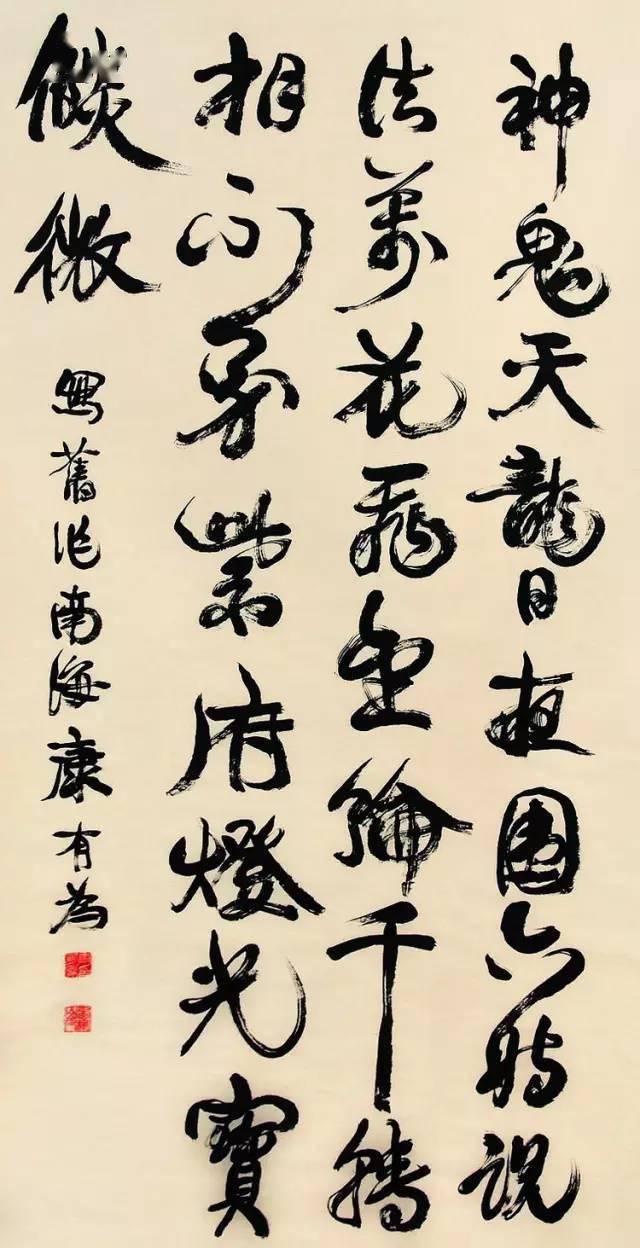 神鬼天龍日夜圍六時說
法萬花飛輪千轉
相紫府燈光寶
燄微
寫舊作南海康有為